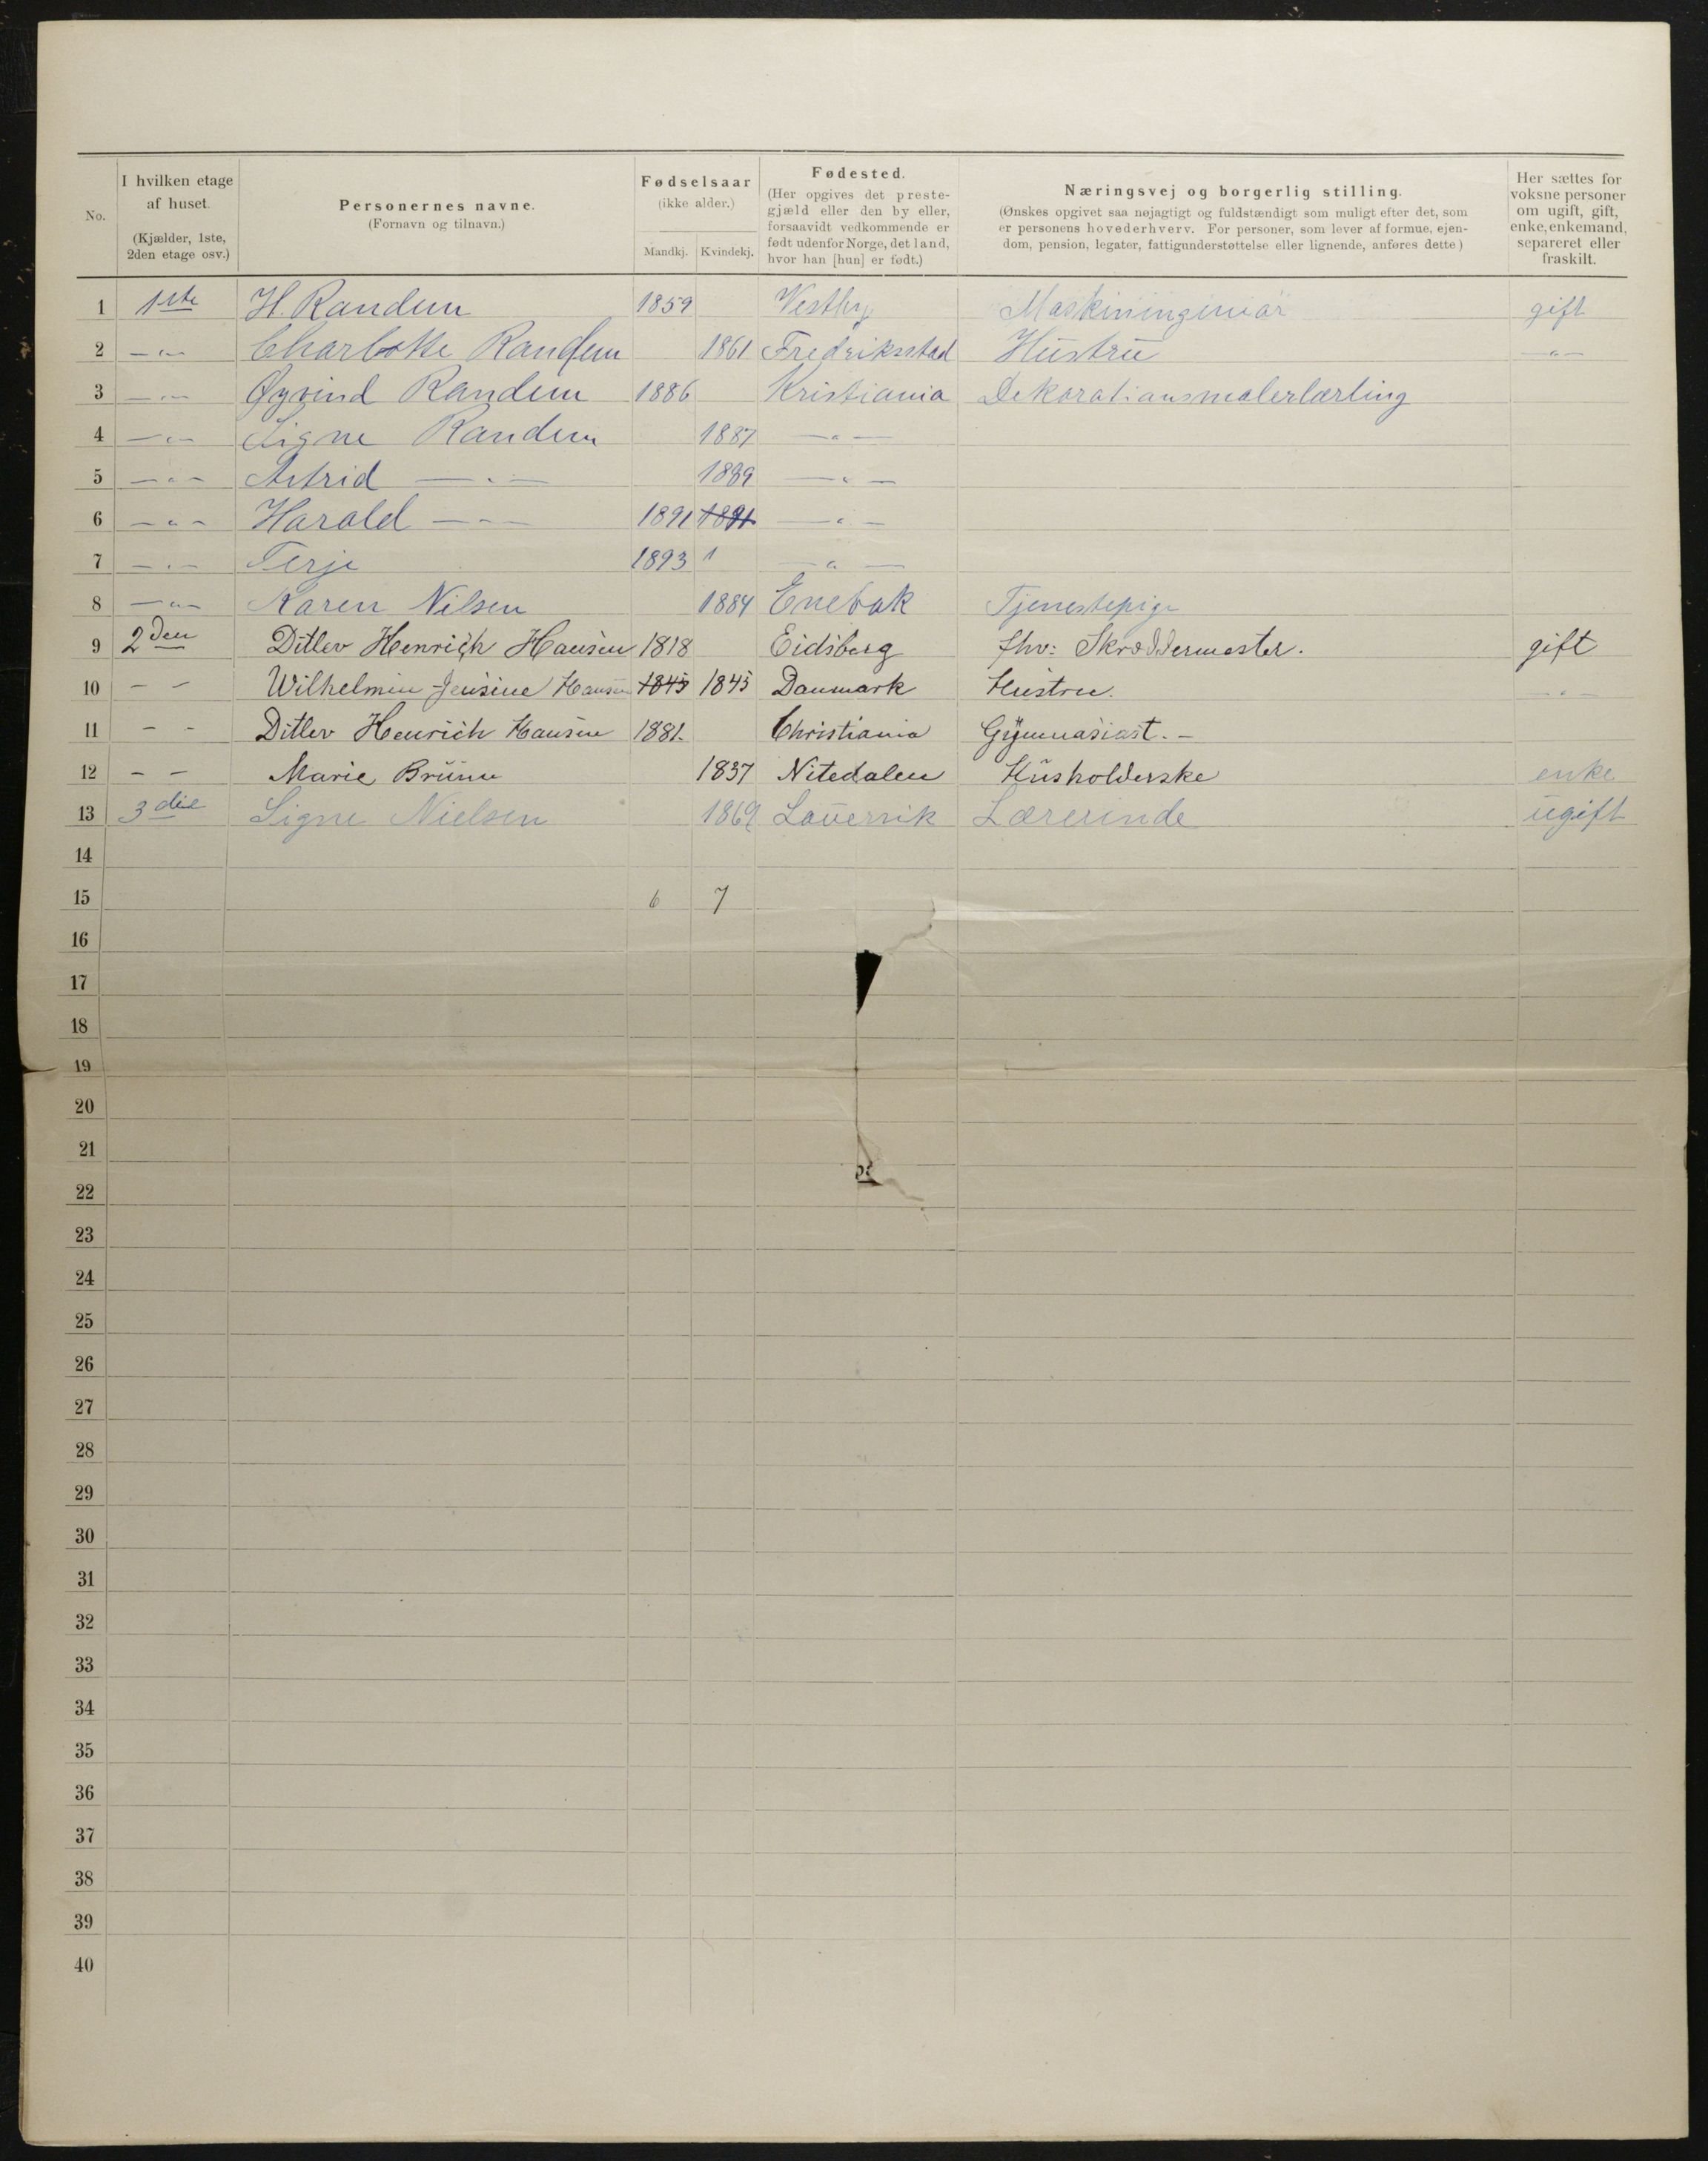 No. | I hvilken etage af huset. (Kjælder, 1ste, 2den etage osv.) | Personernes navne. (Fornavn og tilnavn.) | Fødselsaar (ikke alder.) Mandkj. | Kvindekj. | Fødested. (Her opgives det prestegjæld eller den by eller, forsaavidt vedkommende er født udenfor Norge, det land, hvor han [hun] er født.) | Næringsvej og borgerlig stilling. (Ønskes opgivet saa nøjagtigt og fuldstændigt som muligt efter det, som er personens hovederhverv. For personer, som lever af formue, ejendom, pension, legater, fattigunderstøttelse eller lignende, anføres dette) | Her sættes for voksne personer om ugift, gift, enke, enkemand, separeret eller fraskilt.
1 1ste H. Randem 1859 Vestby Maskiningeniør gift
2 — " — Charlotte Randem 1861 Fredriksstad Hustru — " —
3 — " — Øyvind Randem 1886 Kristiania Dekorationsmalerlærling
4 — " — Signe Randem 1887 — " —
5 — " — Astrid — " — 1889 — " —
6 — " — Harald — " — 1891 1891 — " —
7 — " — Terje 1893 1 — " —
8 — " — Karen Nilsen 1884 Enebak Tjenestepige
9 2den Ditlev Henrich Hansen 1818 Eidsberg fhv: Skræddermester. gift
10 — — Wilhelmin Jensine Hansen 1845 1845 Danmark Hustru. — " —
11 — — Ditlev Henrich Hansen 1881. Christiania Gymnasiast. —
12 — — Marie Brunn 1837 Nitedalen Husholderske enke
13 3die Signe Nielsen 1869 Laurvik Lærerinde ugift
14
15 6 7
16
17
18
19
20
21
22
23
24
25
26
27
28
29
30
31
32
33
34
35
36
37
38
39
40